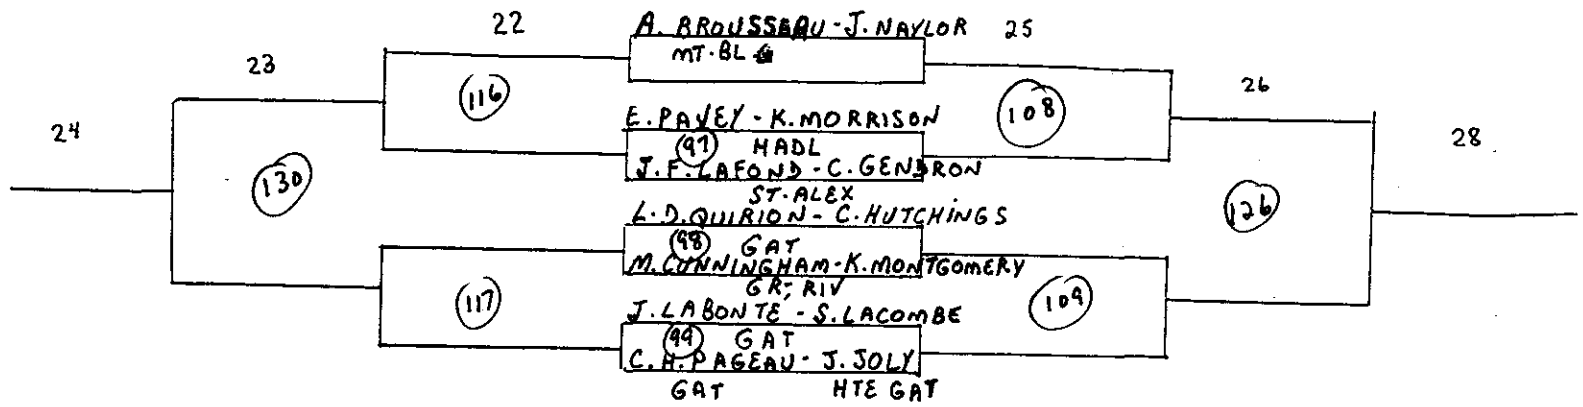 22
A. BROUSSEAU - J. NAYLOR
25
MT. BL
23
116
108
26
E. PAVEY - K. MORRISON
24
97 MADL
28
J. F. LAFOND - C. GENDRON
130
ST. ALEX
126
L. D. QUIRION - C. HUTCHINGS
98 GAT
M. CUNNINGHAM - K. MONTGOMERY
GR, RIV
117
109
J. LABONTE - S. LACOMBE
99 GAT
C. H. PAGEAU - J. JOLY
GAT HTE GAT